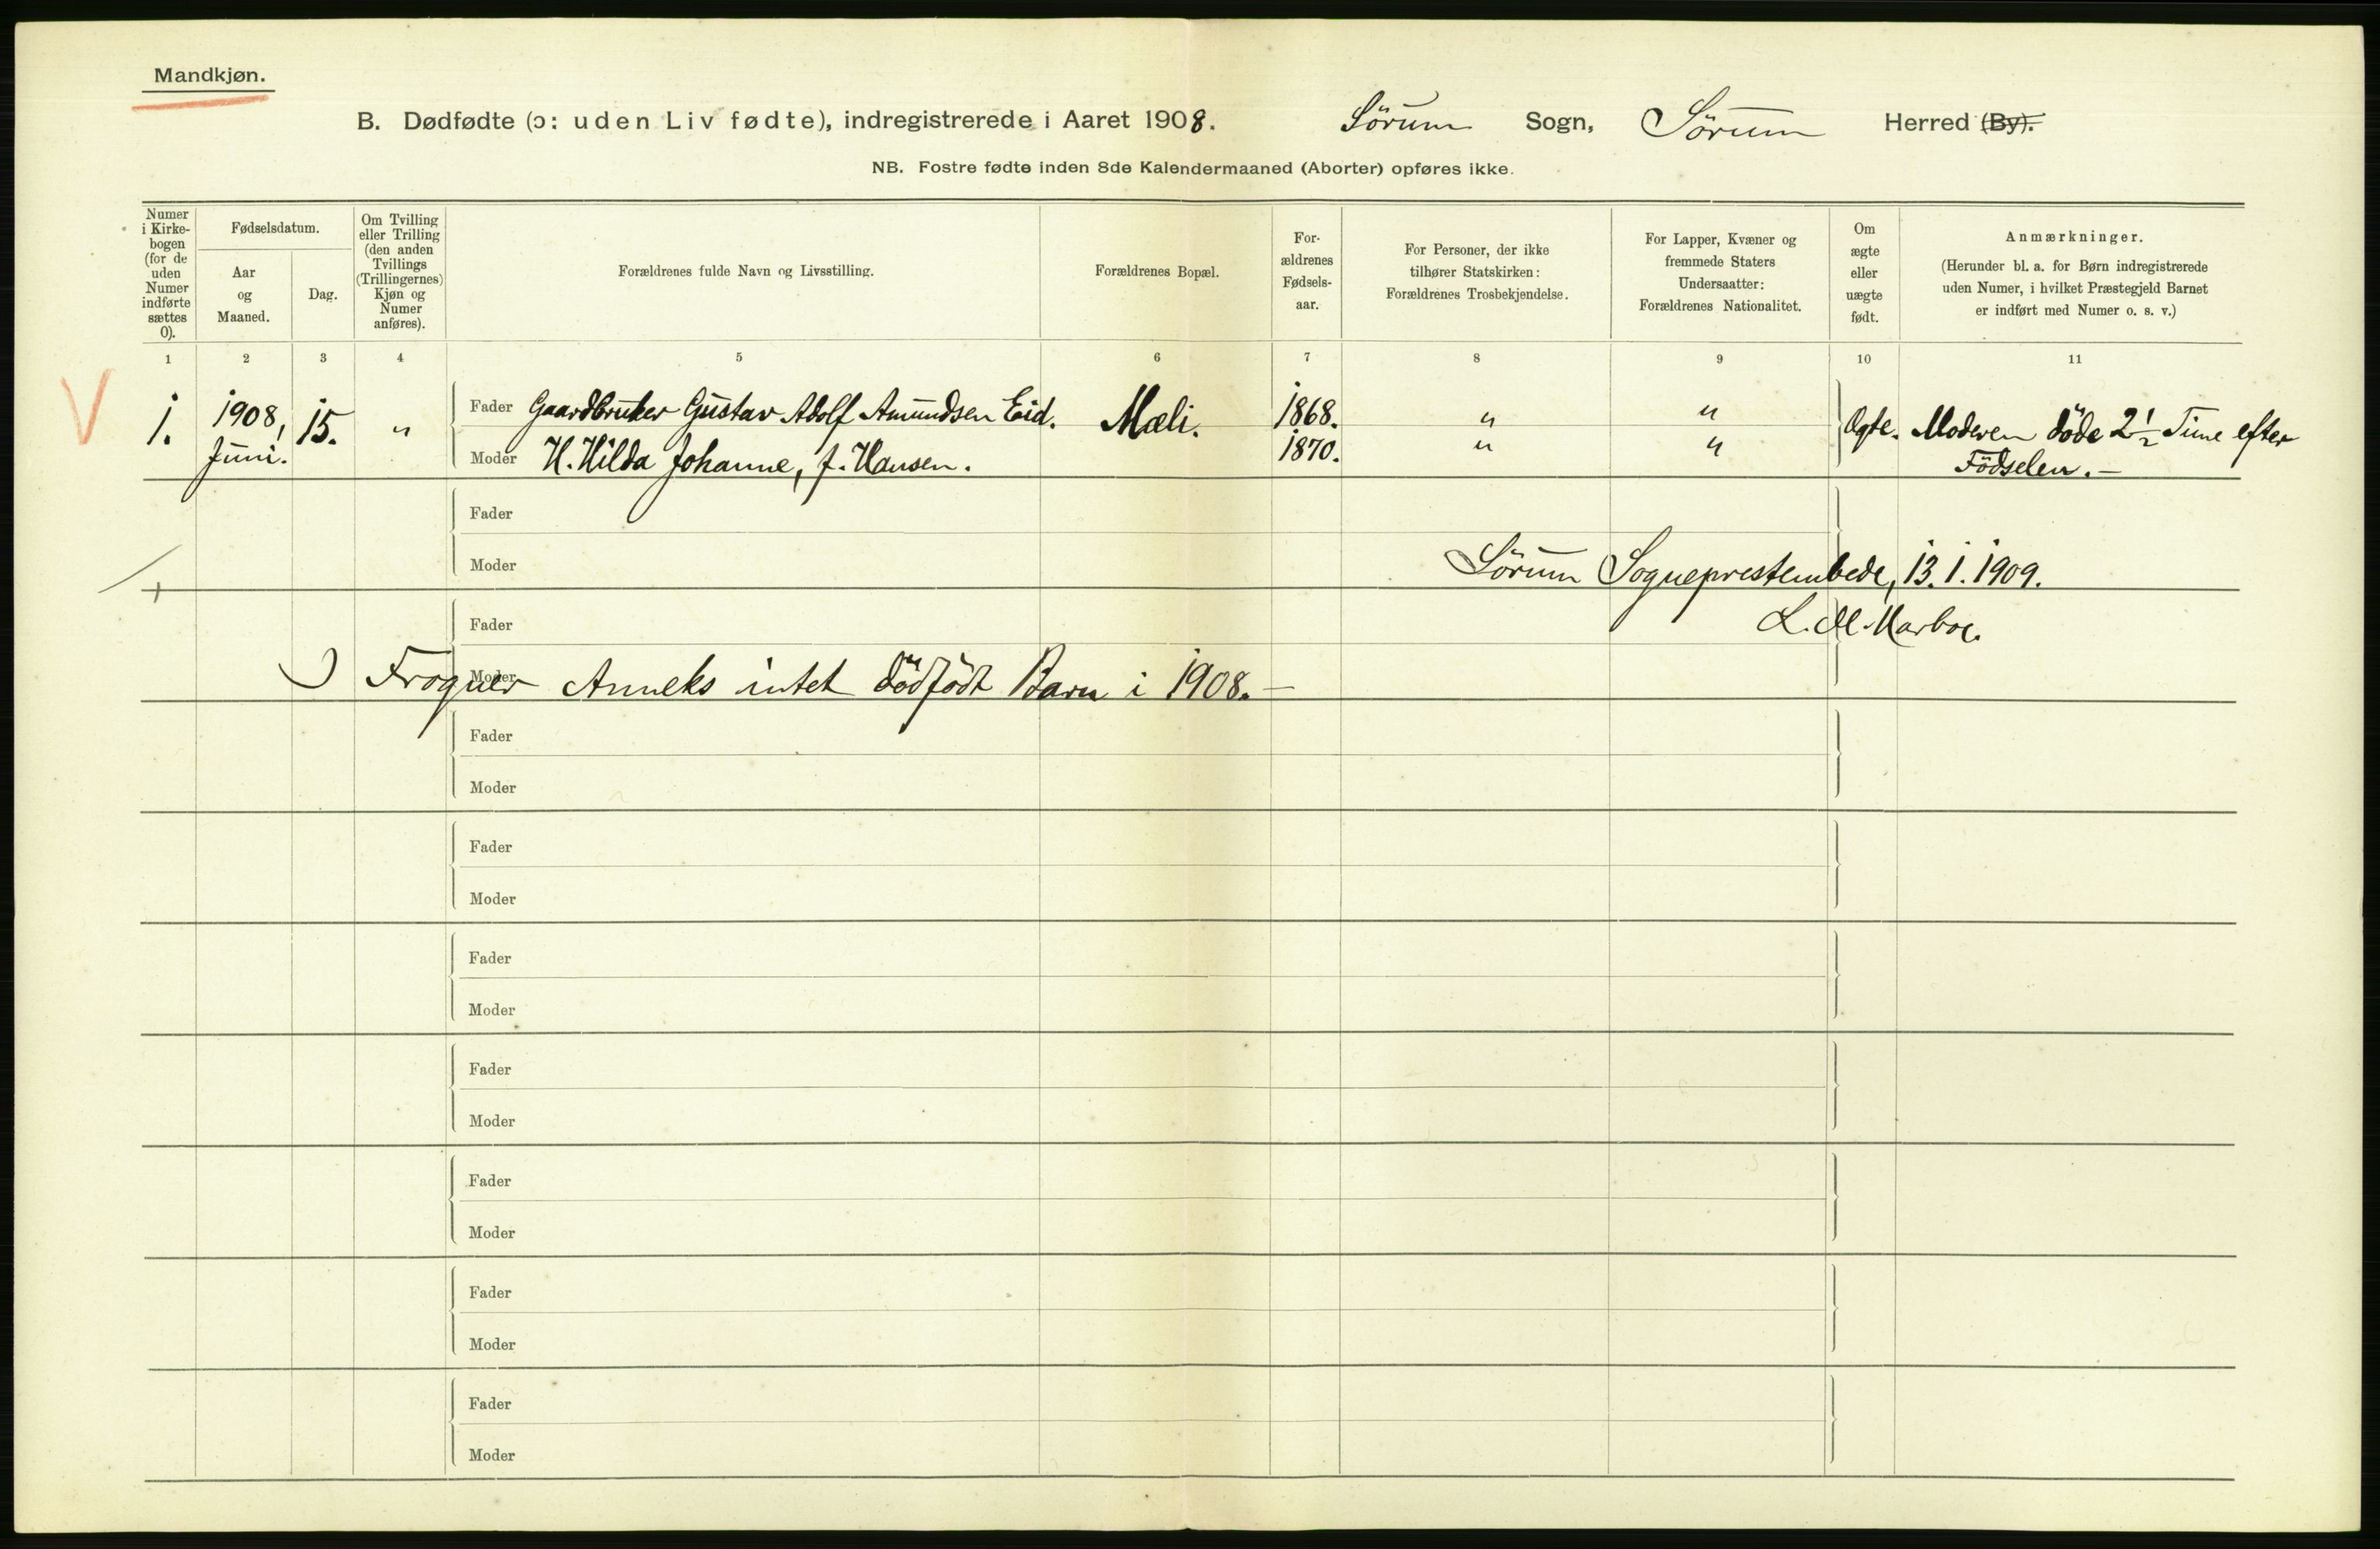 Mandkjøn.
B. Dødfødte (ɔ: uden Liv fødte), indregistrerede i Aaret 1908. Sörum Sogn, Sörum Herred (By).
NB. Fostre fødte inden 8de Kalendermaaned (Aborter) opføres ikke.
Numer i Kirke-bogen (for de uden Numer indførte sættes 0).
Fødselsdatum.
Aar og Maaned.
Dag.
Om Tvilling eller Trilling (den anden Tvillings (Trillingernes) Kjøn og Numer anføres).
Forældrenes fulde Navn og Livsstilling.
Forældrenes Bopæl.
For-ældrenes Fødsels-aar.
For Personer, der ikke tilhører Statskirken: Forældrenes Trosbekjendelse.
For Lapper, Kvæner og fremmede Staters Undersaatter: Forældrenes Nationalitet.
Om ægte eller uægte født.
Anmærkninger.
(Herunder bl. a. for Børn indregistrerede uden Numer, i hvilket Præstegjeld Barnet er indført med Numer o. s. v.)
1 2 3 4 5 6 7 8 9 10 11
1. 1908, 15. " Fader Gaardbruker Gustav Adolf Amundsen Eid. Mæli. 1868. " " Ægte. Moderen döde 2 1/2 Time efter
Juni. Moder H. Hilda Johanne, f. Hansen. 1870. " " Födselen. —
Fader
Moder Sörum Sogneprestembede, 13.1.1909.
Fader L. M.
Moder Frogner Anneks intet dödfödt Barn i 1908. —
Fader
Moder
Fader
Moder
Fader
Moder
Fader
Moder
Fader
Moder
Fader
Moder
Fader
Moder